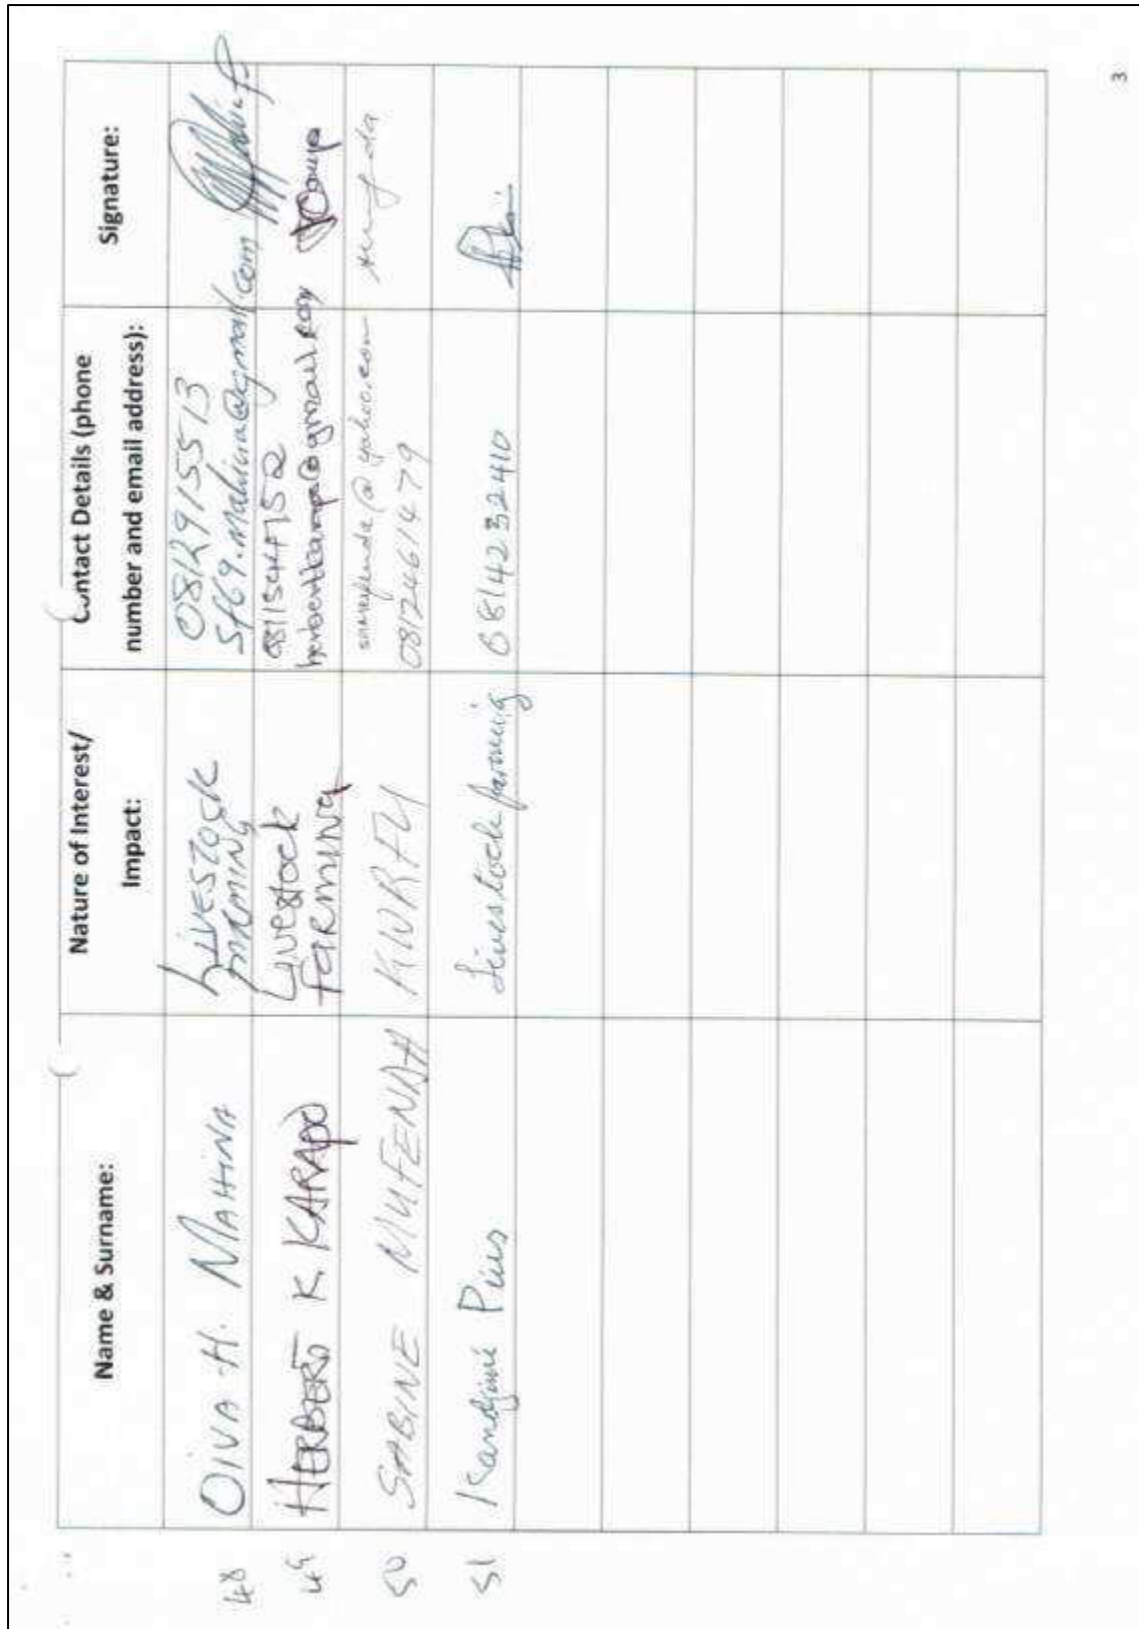 Name & Surname:
Nature of Interest/
Impact:
Contact Details (phone
number and email address):
Signature:
48
OIVA H. MAHINA
LIVESTOCK
FARMING
0812915513
sf69.mahina@gmail.com
49
HERBERT K. KARAPO
Livestock
FARMING
@gmail.com
50
SABINE MUFENDAH
KWRFU
@yahoo.com
0812461479
51
Kandjimi Pius
Livestock farming
0814232410
3